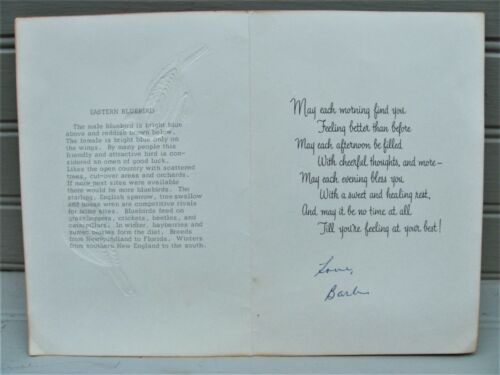 EASTERN BLUEBIRD
The male bluebird is bright blue
above and reddish brown below.
The female is bright blue only on
the wings. By many people this
friendly and attractive bird is con-
sidered an omen of good luck.
Likes the open country with scattered
trees, cut-over areas and orchards.
If more nest sites were available
there would be more bluebirds. The
starling, English sparrow, tree swallow
and house wren are competitive rivals
for home sites. Bluebirds feed on
grasshoppers, crickets, beetles, and
caterpillars. In winter, bayberries and
sumac berries form the diet. Breeds
from Newfoundland to Florida. Winters
from southern New England to the south.
May each morning find you
Feeling better than before
May each afternoon be filled
With cheerful thoughts, and more—
May each evening bless you
With a sweet and healing rest,
And may it be no time at all
Till you're feeling at your best!
Love,
Barb